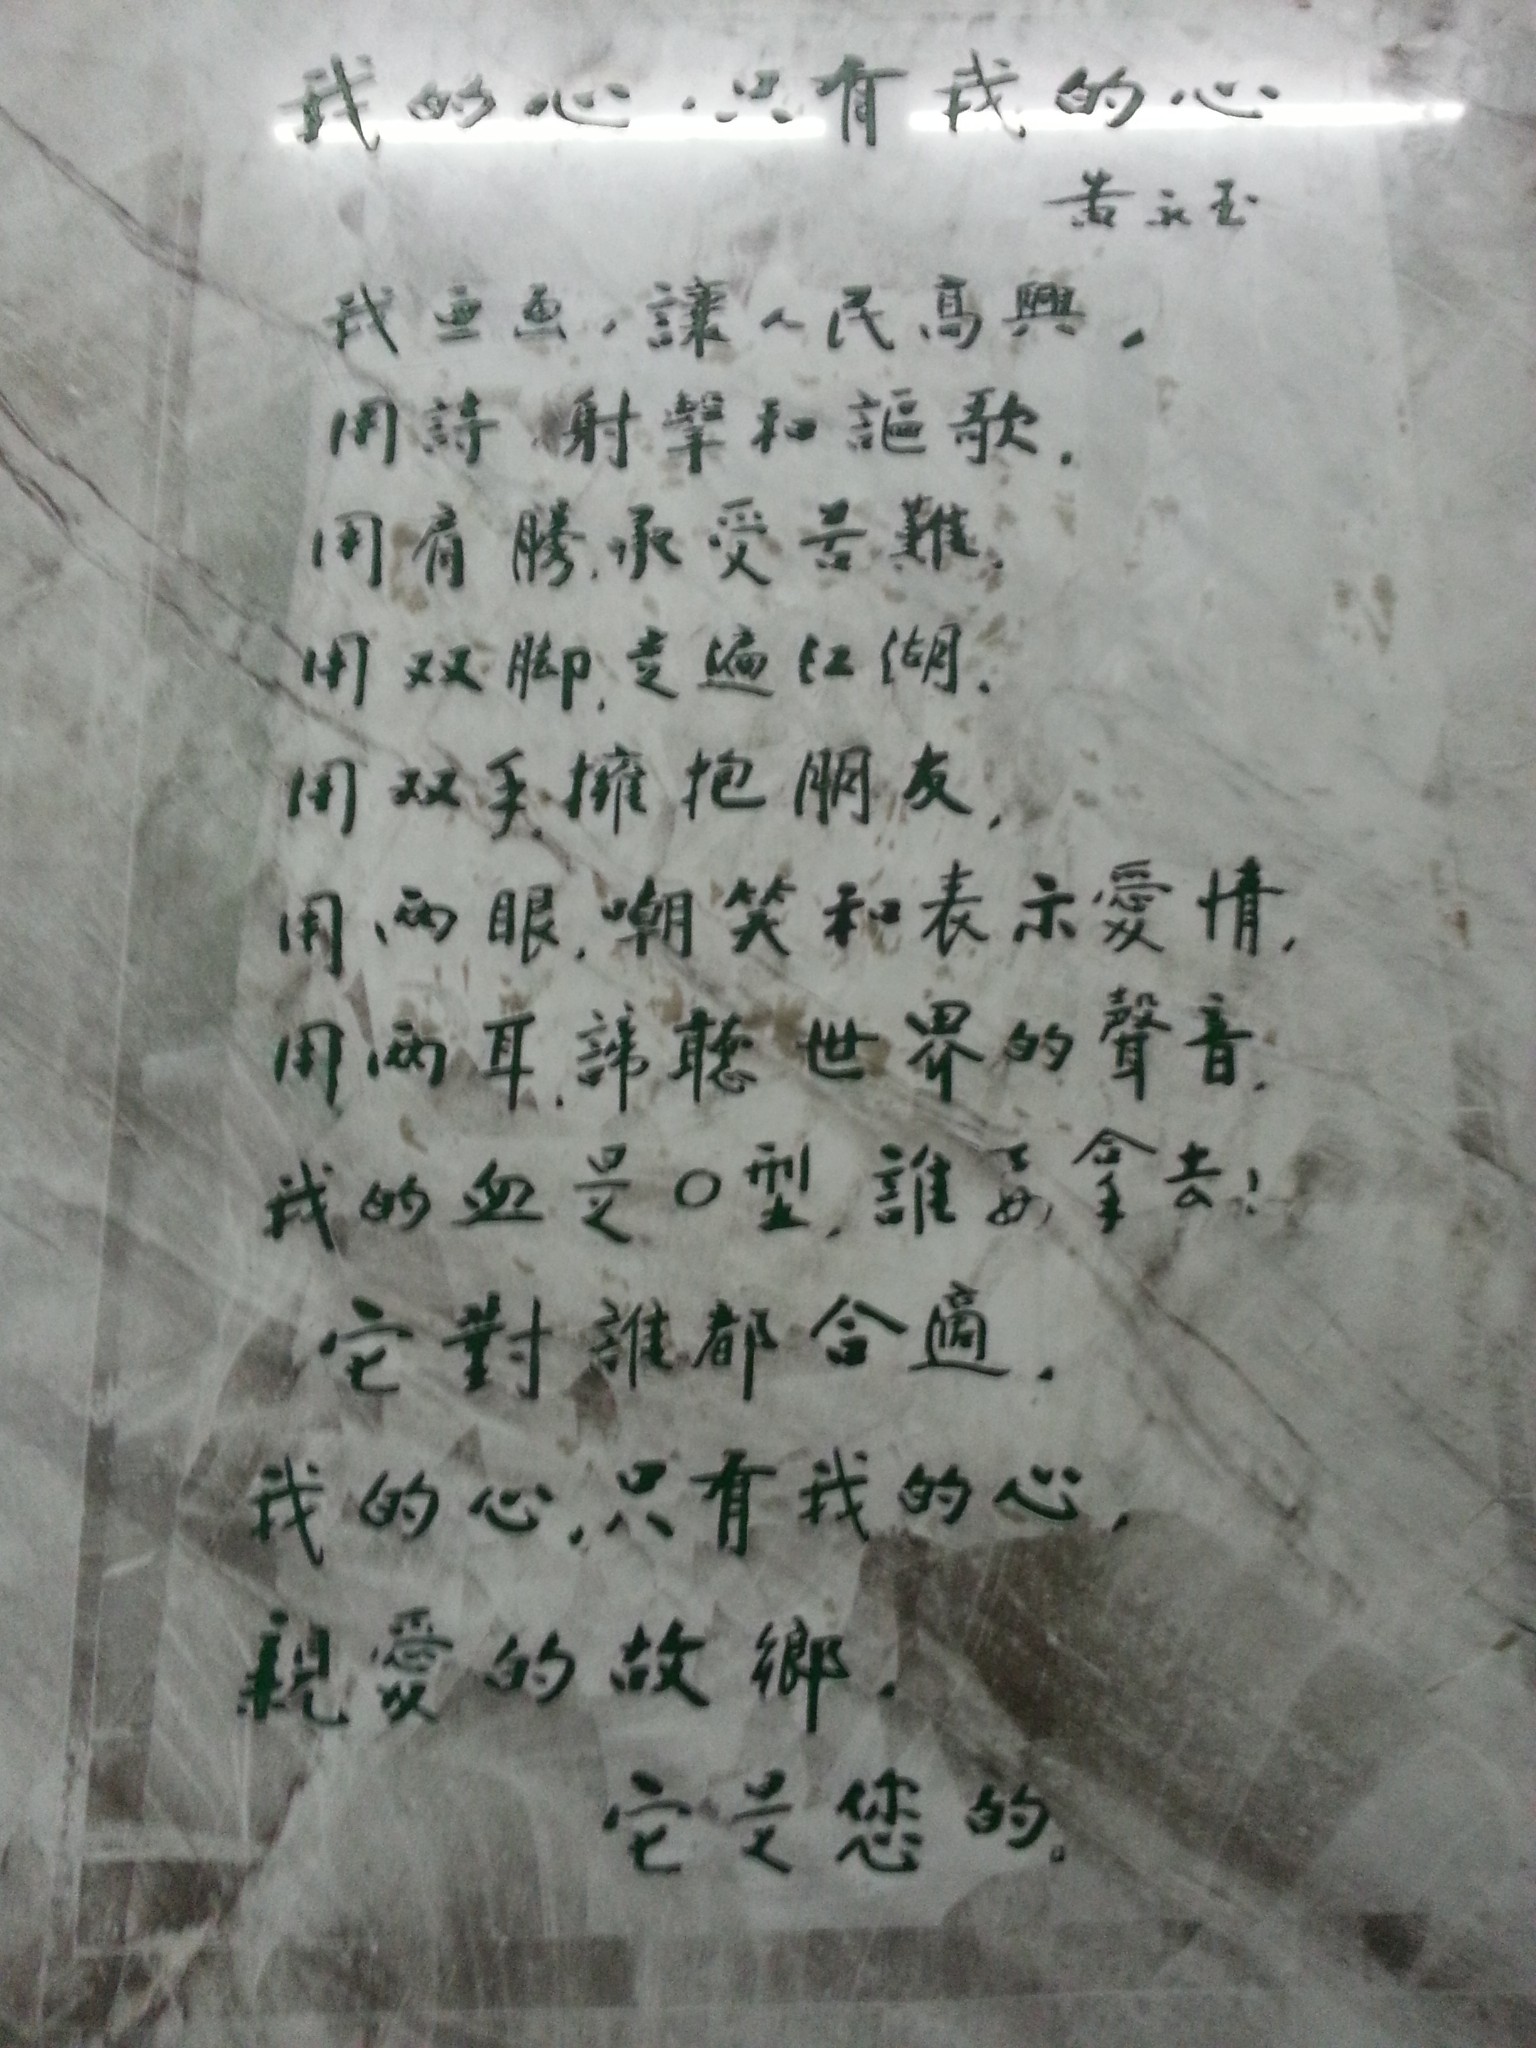 我的心，只有我的心
黃永玉
我画画，讓人民高興，
用詩射擊和謳歌，
用肩膀承受苦難，
用双脚走遍江湖，
用双手擁抱朋友，
用兩眼嘲笑和表示愛情，
用兩耳諦聽世界的聲音，
我的血是O型，誰要拿去！
它對誰都合適．
我的心，只有我的心，
親愛的故鄉，
它是您的。